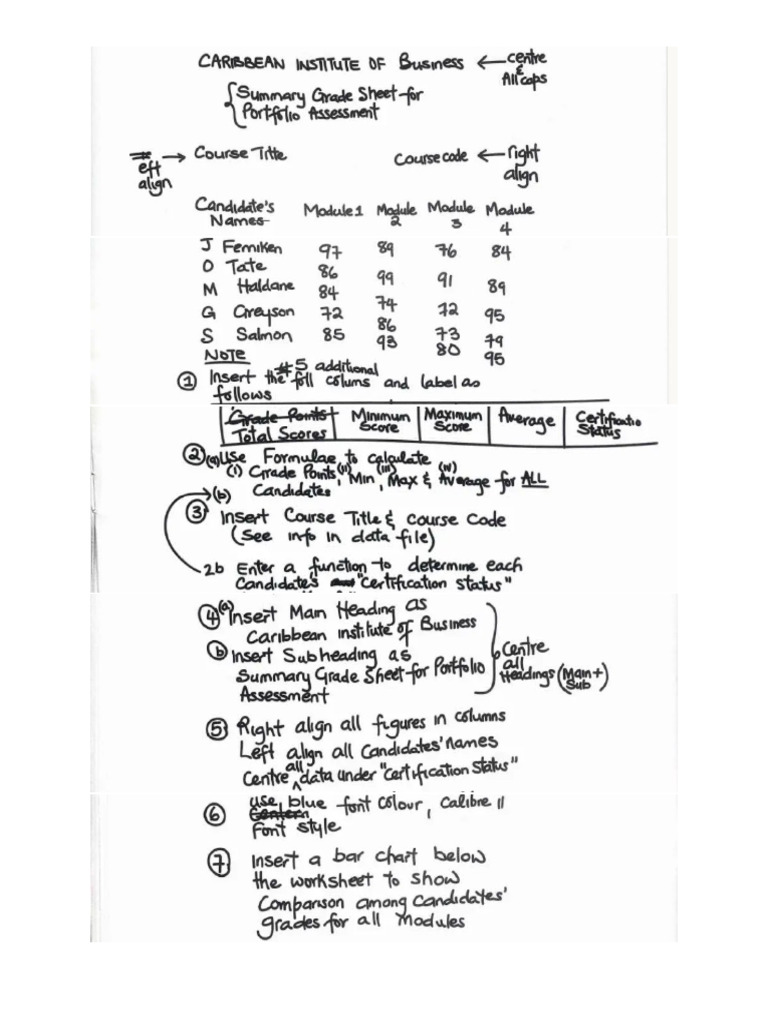 CARIBBEAN INSTITUTE OF Business ← centre & All caps
Summary Grade Sheet for
Portfolio Assessment
eft align → Course Title Course code ← right align
Candidate's Names Module 1 Module 2 Module 3 Module 4
J Femiken 97 89 76 84
O Tate 86 99 91 89
M Haldane 84 74 72 95
G Greyson 72 86 73 79
S Salmon 85 93 80 95
NOTE
① Insert the #5 additional foll colums and label as
follows
Grade Points Total Scores | Minimum Score | Maximum Score | Average | Certificatio Status
② (a) Use Formulae to calculate
(i) Grade Points, (ii) Min, (iii) Max & (iv) Average for ALL
(b) Candidates
③ Insert Course Title & Course Code
(see info in data file)
2b Enter a function to determine each
Candidate's "Certification Status"
④ (a) Insert Main Heading as
Caribbean institute of Business
(b) Insert Subheading as
Summary Grade Sheet for Portfolio
Assessment
Centre
all
Headings (Main + Sub)
⑤ Right align all figures in columns
Left align all Candidates' names
Centre all data under "Certification Status"
⑥ Use blue font colour, Calibre 11
Font style
⑦ Insert a bar chart below
the worksheet to show
Comparison among Candidates'
grades for all modules